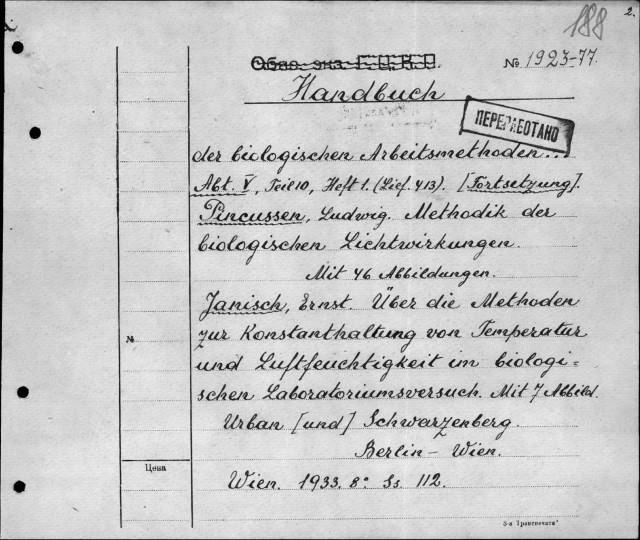 188
2.
Обяз. экз. Г. Ц. К. П.
№ 1923-77.
Handbuch
ПЕРЕРАБОТАНО
der biologischen Arbeitsmethoden...
Abt. V, Teil 10, Heft 1. (Lief. 413). [Fortsetzung].
Pincussen, Ludwig. Methodik der
biologischen Lichtwirkungen.
Mit 46 Abbildungen.
Janisch, Ernst. Über die Methoden
zur Konstanthaltung von Temperatur
№
und Luftfeuchtigkeit im biologi=
schen Laboratoriumsversuch. Mit 7 Abbild.
Urban [und] Schwarzenberg.
Berlin – Wien.
Цена
Wien. 1933. 8° Ss. 112.
3-я "Транспечати"